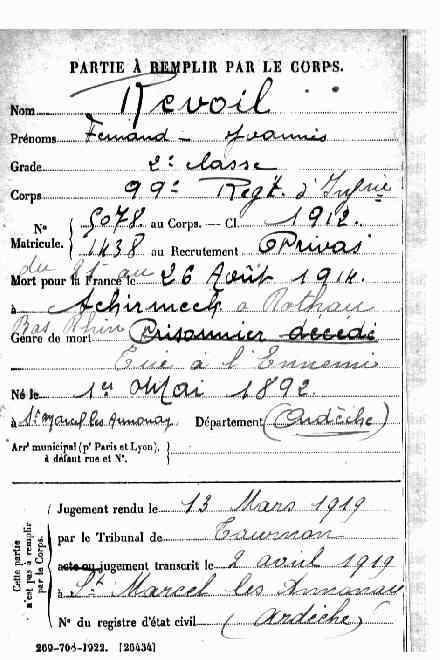 PARTIE À REMPLIR PAR LE CORPS.
Nom Revoil
Prénoms Fernand - Joannis
Grade 2e classe
Corps 99e Regt. d'Infrie
Nº Matricule. 5078. au Corps. — Cl. 1912.
1438 au Recrutement Privas
Mort pour la France le du 25 au 26 Août 1914.
à Schirmeck à Rothau
Bas Rhin
Genre de mort Prisonnier décédé
Tué à l'Ennemi
Né le 1er Mai 1892.
à St Marcel les Annonay Département (Ardèche)
Arrt municipal (pr Paris et Lyon),
à défaut rue et Nº.
Cette partie n'est pas à remplir par le Corps.
Jugement rendu le 13 Mars 1919
par le Tribunal de Tournon
acte ou jugement transcrit le 2 avril 1919
à St Marcel les Annonay
Nº du registre d'état civil (Ardèche)
269-708-1922. [26434]